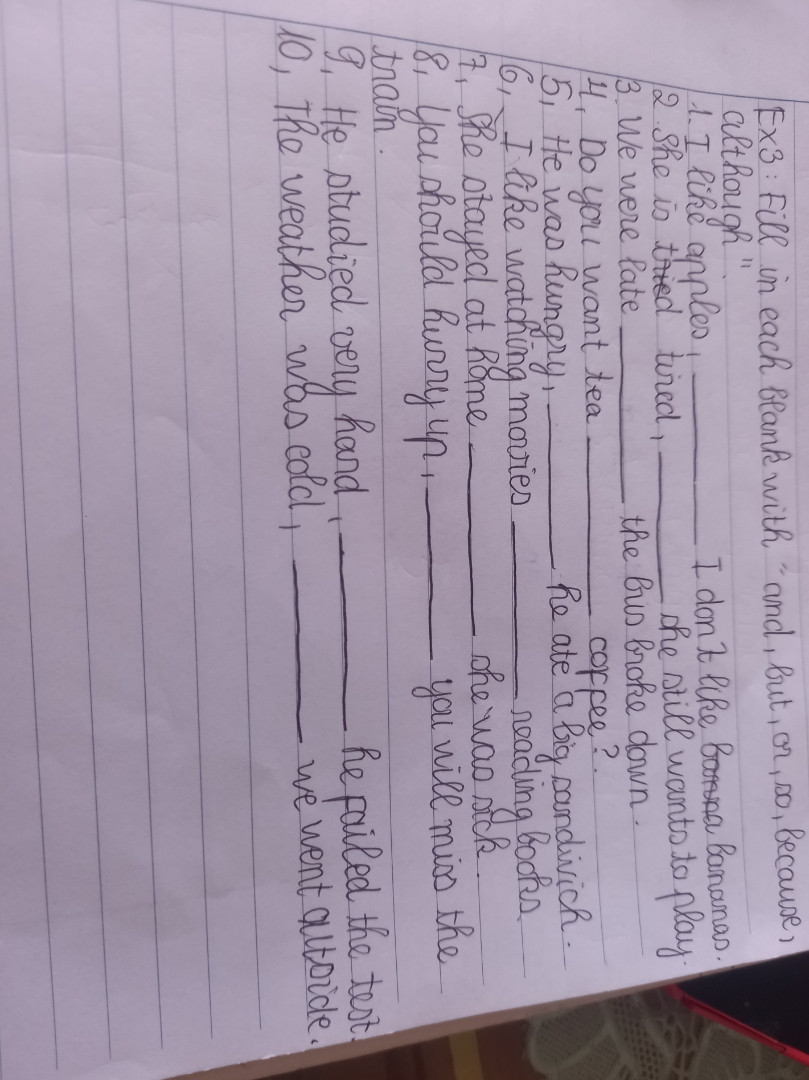 Ex3: Fill in each blank with "and, but, or, so, because,
although"
1. I like apples, ______ I don't like bananas.
2. She is tired, ______ she still wants to play.
3. We were late ______ the bus broke down.
4, Do you want tea ______ coffee?
5, He was hungry, ______ he ate a big sandwich.
6, I like watching movies ______ reading books
7, She stayed at home ______ she was sick.
8, You should hurry up, ______ you will miss the
train.
9, He studied very hard, ______ he failed the test.
10, The weather was cold, ______ we went outside.